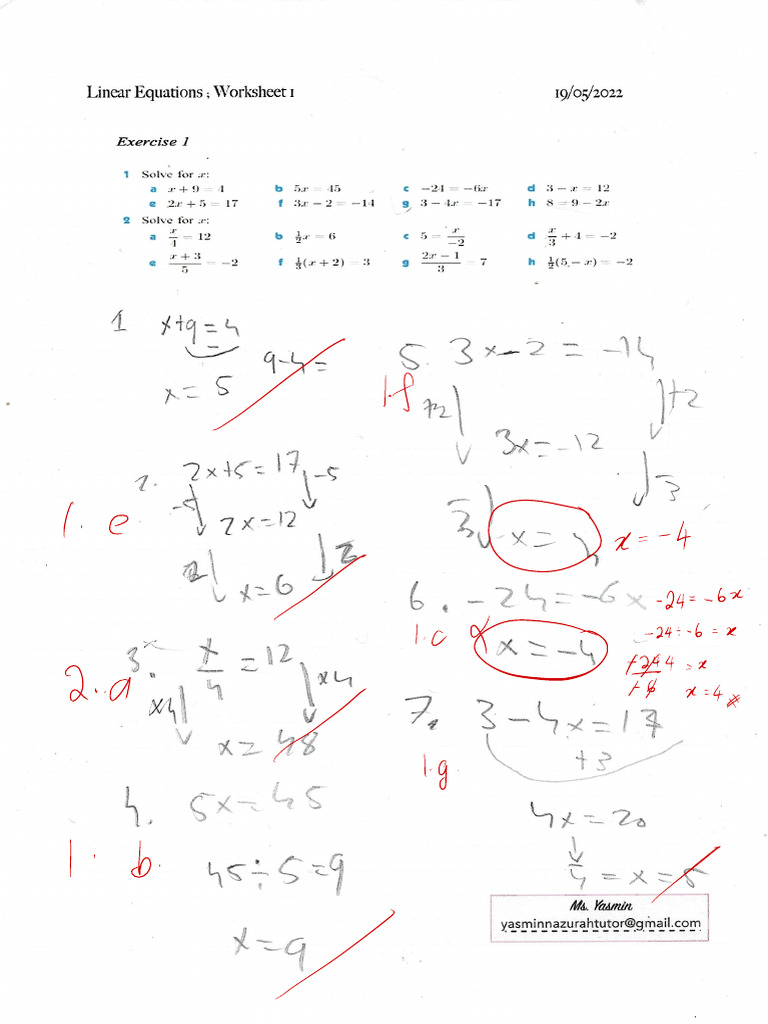 Linear Equations ; Worksheet 1 19/05/2022
Exercise 1
1 Solve for x:
a x + 9 = 4 b 5x = 45 c −24 = −6x d 3 − x = 12
e 2x + 5 = 17 f 3x − 2 = −14 g 3 − 4x = −17 h 8 = 9 − 2x
2 Solve for x:
a x/4 = 12 b ½x = 6 c 5 = x/−2 d x/3 + 4 = −2
e (x + 3)/5 = −2 f ⅓(x + 2) = 3 g (2x − 1)/3 = 7 h ½(5 − x) = −2
1 x+9=4
9-4=
x = 5
2. 2x+5=17
1. e
-5 -5
2x=12
x=6
3. x/4 = 12
2. a
x4 x4
x = 48
4. 5x=45
1. b.
45÷5=9
x=9
5. 3x-2 = -14
1.f
+2 +2
3x=-12
x =
x = -4
6. -24=-6x
1.c
x = -4
-24 = -6x
-24÷-6 = x
x = 4
7. 3-4x=17
1.g.
+3
4x=20
= x = 5
Ms. Yasmin
yasminnazurahtutor@gmail.com